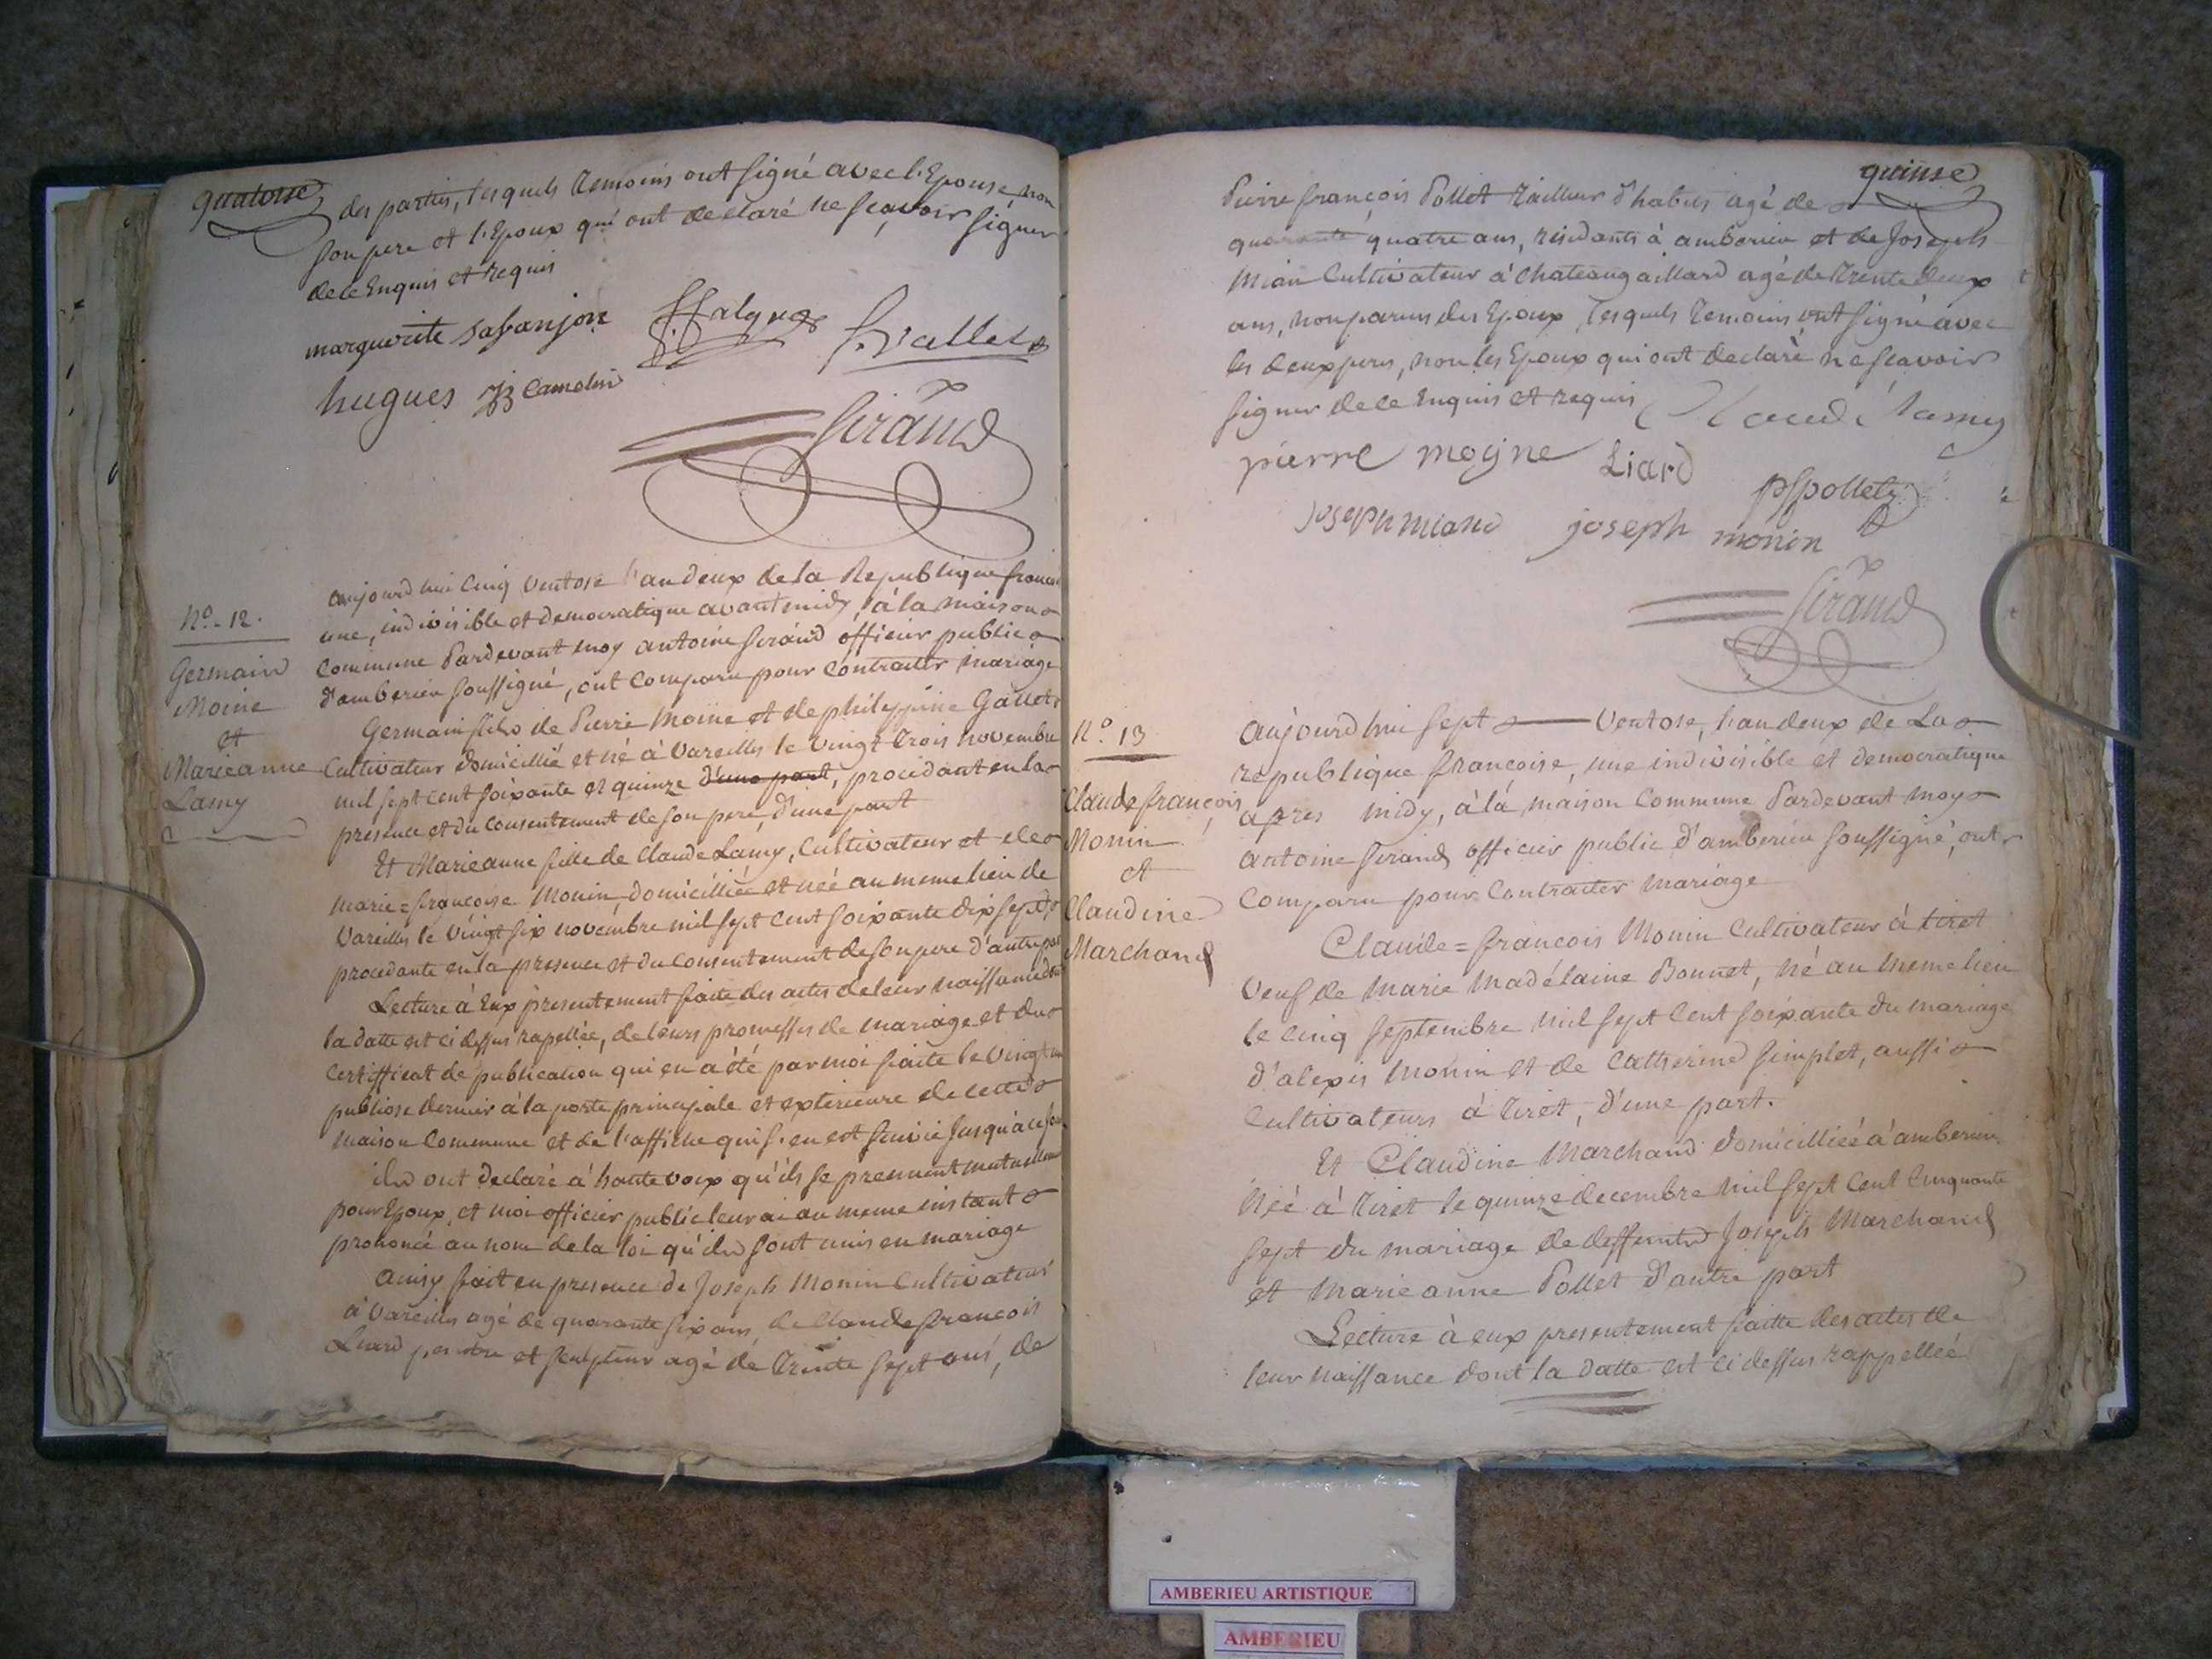 quatorse
des parties, lesquels temoins ont signé avec l'Epouse, non
son pere et l'Epoux qui ont declaré ne sçavoir signer
de ce Enquis et requis
marguerite savanjon
hugues JB Camelin
Sirand
N.o 12.
Germain
Moine
et
Marieanne
Lamy
aujourd'hui cinq ventose l'an deux de la Republique francoi
une, indivisible et democratique avant midy, à la maison
Commune Pardevant moy antoine Sirand officier public
d'amberieu soussigné, ont comparu pour contracter mariage
Germain fils de Pierre Moine et de philippine Gallet
Cultivateur domicilié et né à Vareilles le vingt trois novembre
mil sept cent soixante et quinze d'une part, procedant en la
presence et du consentement de son pere, d'une part
Et Marieanne fille de Claude Lamy, Cultivateur et de
marie=françoise Monin domiciliée et née au meme lieu de
Vareilles le vingt six novembre mil sept cent soixante dix sept
procedante en la presence et du consentement de son pere d'autre part
Lecture à Eux presentement faite des actes de leur naissance dont
la datte est ci dessus rapellée, de leurs promesses de mariage et du
Certifficat de publication qui en a été par moi faite le vingt un
pluviose dernier à la porte principale et exterieure de cette
maison Commune et de l'affiche qui s'en est suivie jusqu'à ce jour
ils ont declaré à haute voix qu'ils se prennent mutuellement
pour Epoux, et moi officier public leur ai au meme instant
prononcé au nom de la loi qu'ils sont unis en mariage
ainsy fait en presence de Joseph Monin Cultivateur
à Vareilles agé de quarante six ans, de Claude françois
Liard peintre et sculpteur agé de trente sept ans, de
quinse
Pierre françois Pollet tailleur d'habits agé de
quarante quatre ans, résidants à amberieu et de Joseph
Mian Cultivateur à Chateaugaillard agé de trente deux
ans, non parens des Epoux, lesquels temoins ont signé avec
les deux peres, non les Epoux qui ont declaré ne scavoir
signer de ce Enquis et requis Claude lamy
pierre moyne Liard pfpollet
Joseph miand joseph monin
Sirand
N.o 13
Claude françois
Monin
et
Claudine
Marchand
aujourd'hui sept ventose, l'an deux de La
republique francoise, une indivisible et democratique
apres midy, à la maison Commune Pardevant moy
antoine Sirand officier public d'amberieu soussigné, ont
Comparu pour Contracter mariage
Claude=francois Monin Cultivateur à tiret
Veuf de Marie Madélaine Bonnet, né au meme lieu
le cinq septembre mil sept cent soixante du mariage
d'alexis Monin et de Catherine Simplet, aussi
Cultivateurs à Tiret, d'une part.
Et Claudine Marchand domicilliée à amberieu
Née à Tiret le quinze decembre mil sept cent cinquante
sept du mariage de deffunts Joseph Marchand
et Marie anne Pollet d'autre part
Lecture à eux presentement faitte des actes de
leur naissance dont la datte est ci dessus rappellée
AMBERIEU ARTISTIQUE
AMBERIEU